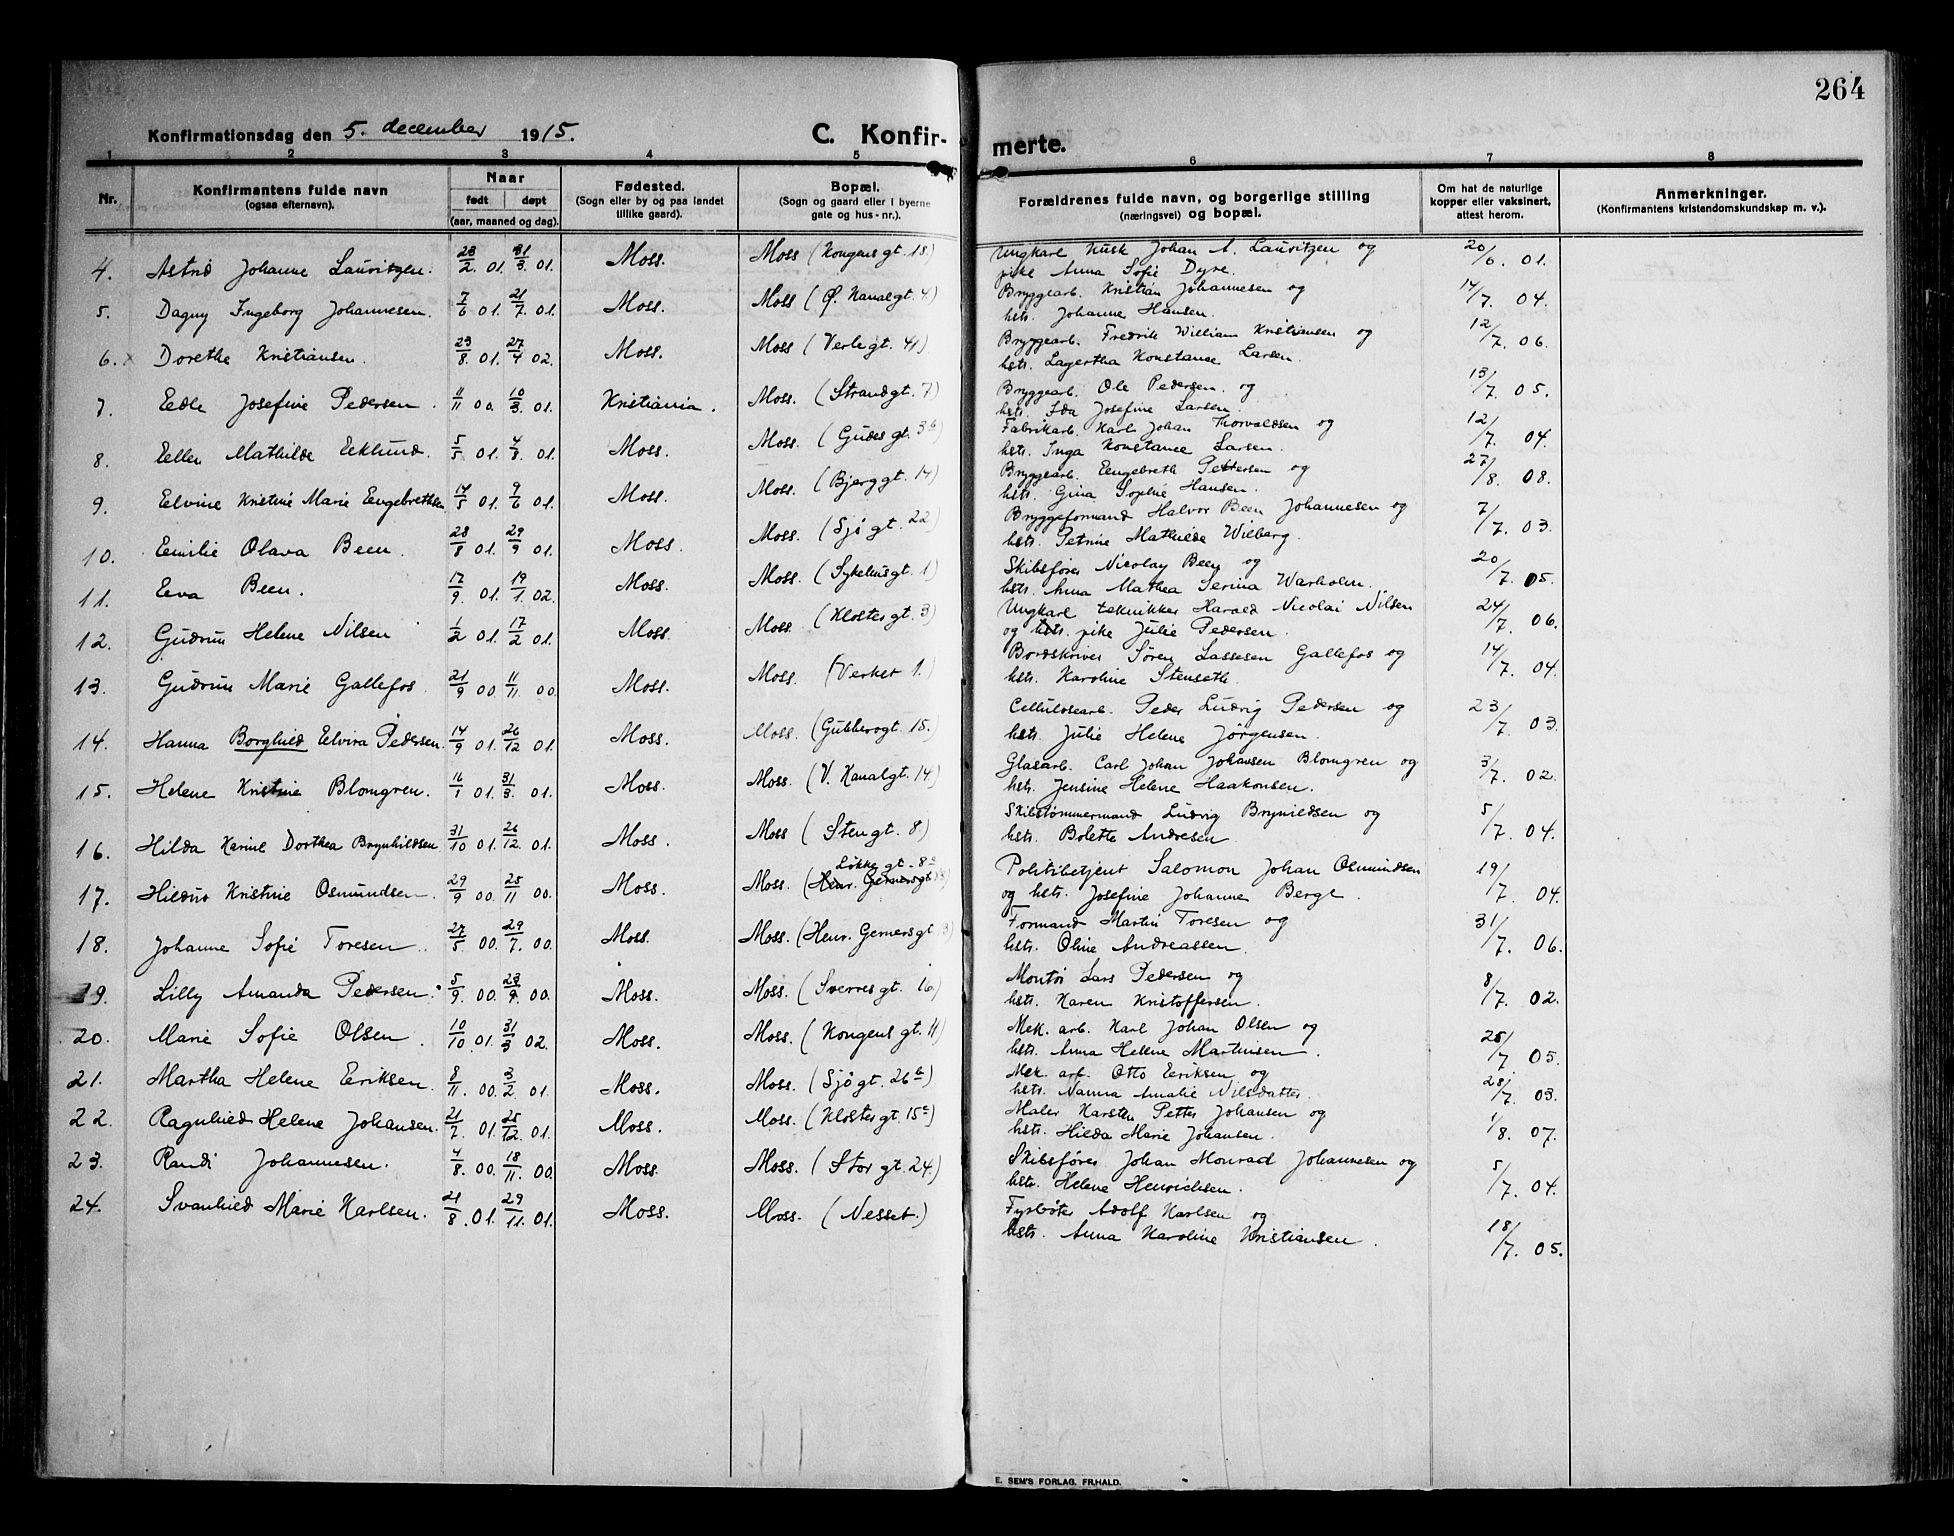 264
Konfirmationsdag den 5. december 1915.
C. Konfir-
merte.
1 2 3 4 5 6 7 8
Nr.
Konfirmantens fulde navn
(ogsaa efternavn).
Naar
født døpt
(aar, maaned og dag).
Fødested.
(Sogn eller by og paa landet
tillike gaard).
Bopæl.
(Sogn og gaard eller i byerne
gate og hus-nr.).
Forældrenes fulde navn, og borgerlige stilling
(næringsvei) og bopæl.
Om hat de naturlige
kopper eller vaksinert,
attest herom.
Anmerkninger.
(Konfirmantens kristendomskundskap m. v.).
4. Astrid Johanne Lauritzen. 23/2 01. 31/3. 01. Moss. Moss (Kongens gt. 18.) Ungkarl Kusk Johan A. Lauritzen og 20/6. 01.
pike Anna Sofie Dyre.
5. Dagny Ingeborg Johannesen. 7/6 01. 21/7. 01. Moss. Moss (Ø. Kanalgt. 4) Bryggearb. Kristian Johannesen og 14/7. 04.
hstr. Johanne Hansen.
6. x Dorethe Kristiansen. 23/8. 01. 27/4 02. Moss. Moss (Verlegt. 41) Bryggearb. Fredrik William Kristiansen og 12/7. 06.
hstr. Lagertha Konstance Larsen.
7. Edle Josefine Pedersen. 11/11 00. 10/3. 01. Kristiania. Moss. (Strandgt. 7) Bryggearb. Ole Pedersen. og 13/7. 05.
hstr. Ida Josefine Larsen.
8. Ellen Mathilde Eklund. 5/5 01. 4/8. 01. Moss. Moss. (Gudes gt. 3b) Fabrikarb. Karl Johan Thorvaldsen og 12/7. 04.
hstr. Inga Konstance Larsen.
9. Elvine Kristine Marie Engebrethsen 14/5 01. 9/6 01. Moss. Moss. (Bjerggt. 14) Bryggearb. Engebreth Pettersen og 27/8. 08.
hstr. Gina Sophie Hansen.
10. Emilie Olava Been. 28/8 01. 29/9 01. Moss. Moss. (Sjøgt. 22) Bryggeformand Halvor Been Johannesen og 7/7. 03.
hstr. Petrine Mathilde Wiberg.
11. Eva Been. 17/9. 01. 19/1. 02. Moss. Moss. (Sykehusgt. 1) Skibsfører Nicolay Been og 20/7. 05.
hstr. Anna Mathea Serina Warholm.
12. Gudrun Helene Nilsen 1/2 01. 17/2 01. Moss. Moss. (Klostergt. 3) Ungkarl tekniker Harald Nicolai Nilsen 24/7. 06.
og hstr. pike Julie Pedersen.
13. Gudrun Marie Gallefos. 21/9 00. 11/11. 00. Moss. Moss. (Verket 1.) Bordskriver Søren Lassesen Gallefos og 14/7. 04.
hstr. Karoline Stenseth.
14. Hanna Borghild Elvira Pedersen. 14/9 01. 26/12 01. Moss. Moss. (Gubberogt. 15.) Cellulosearb. Peder Ludvig Pedersen og 23/7. 03.
hstr. Julie Helene Jørgensen.
15. Helene Kristine Blomgren. 16/1 01. 31/3. 01. Moss. Moss (V. Kanalgt. 14) Glasarb. Carl Johan Johansen Blomgren og 31/7. 02.
hstr. Jensine Helene Haakonsen.
16. Hilda Karine Dorthea Brynhildsen 31/10 01. 26/12. 01. Moss. Moss (Stengt. 8) Skibstømmermand Ludvig Brynildsen og 5/7. 04.
hstr. Bolette Andresen
17. Hildur Kristine Osmundsen. 29/9 00. 25/11 00. Moss. Moss. (Henr. Gernersgt. Løkkegt. 8) Politibetjent Salomon Johan Osmundsen 19/7. 04.
og hstr. Josefine Johanne Berge.
18. Johanne Sofie Toresen. 27/5 00. 29/7. 00. Moss. Moss. (Henr. Gernersgt. 13) Formand Martin Toresen og 31/7. 06.
hstr. Oline Andreassen.
19. Lilly Amanda Pedersen. 5/9. 00. 23/9. 00. Moss. Moss. (Sverresgt. 16) Montør Lars Pedersen og 8/7. 02.
hstr. Karen Kristoffersen.
20. Marie Sofie Olsen. 10/10 01. 31/3 02. Moss. Moss. (Kongens gt. 11) Mek. arb. Karl Johan Olsen og 25/7 05.
hstr. Anna Helene Martinsen.
21. Martha Helene Eriksen. 8/11. 00. 3/2 01. Moss. Moss. (Sjøgt. 26b) Mek. arb. Otto Eriksen og 28/7. 03.
hstr. Nanna Amalie Nilsdatter.
22. Ragnhild Helene Johansen. 21/7. 01. 25/12. 01. Moss. Moss. (Klostergt. 15a) Maler Karsten Petter Johansen og 1/8. 07.
hstr. Hilda Marie Johansen.
23. Randi Johannesen. 4/8. 00. 18/11. 00. Moss. Moss. (Storgt. 24.) Skibsfører Johan Monrad Johannesen og 5/7. 04.
hstr. Helene Henrichsen.
24. Svanhild Marie Karlsen. 21/8. 01. 29/11. 01. Moss. Moss. (Nesset.) Fyrbøter Adolf Karlsen og 18/7. 05.
hstr. Anna Karoline Kristiansen.
E. SEM'S FORLAG. FR.HALD.